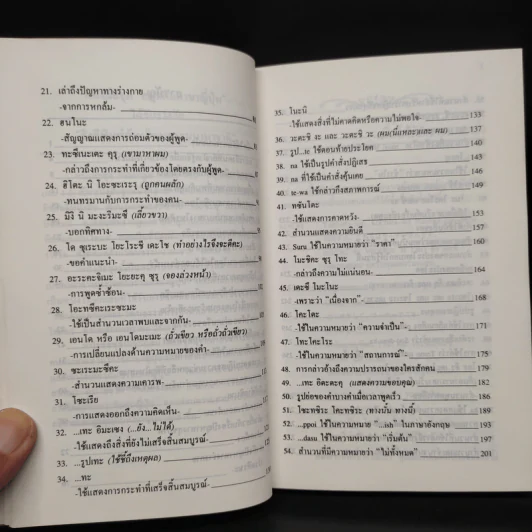 21. เล่าถึงปัญหาทางร่างกาย
-จากการหกล้ม-
22. ฮนโนะ
-สัญญาณแสดงการถ่อมตัวของผู้พูด-
23. ทะซึเนะเตะ คุรุ (เขามาหาผม)
-กล่าวถึงการกระทำที่เกี่ยวข้องโดยตรงกับผู้พูด-
24. ฮิโตะ นิ โอะซะเระรุ (ถูกคนผลัก)
-ทนทรมานกับการกระทำของคน-
25. มิงิ นิ มะงะริมะซึ (เลี้ยวขวา)
-บอกทิศทาง-
26. โด ซุเระบะ โยะโระชิ เดะโช (ทำอย่างไรจึงจะดีคะ)
-ขอคำแนะนำ-
27. อะระคะจิเมะ โยะยะคุ ซุรุ (จองล่วงหน้า)
-การพูดซ้ำซ้อน-
28. โอะทซึคะเระซะมะ
-ใช้เป็นสำนวนเวลาพบและจากกัน-
29. เอนโด หรือ เอนโดมะเมะ (ถั่วเขียว หรือถั่วถั่วเขียว)
-การเปลี่ยนแปลงด้านความหมายของคำ-
30. ซะเระมะซึคะ
-สำนวนแสดงความเคารพ-
31. โซะเรีย
-การแสดงออกถึงความคิดเห็น-
32. ...เทะ อิมะเซง (...ยัง...ไม่ได้)
-ใช้แสดงถึงสิ่งที่ยังไม่เสร็จสิ้นสมบูรณ์-
33. ...รูปเทะ (ใช้ชี้ถึงเหตุผล)
34. ...ทะ
-ใช้แสดงการกระทำที่เสร็จสิ้นสมบูรณ์-
35. โนะนิ
-ใช้แสดงสิ่งที่ไม่คาดคิดหรือความไม่พอใจ- 133
36. วะตะชิ งะ และ วะตะชิ วะ (ผมนี่แหละและ ผม) 137
37. รูป...te ใช้ตอนท้ายประโยค 140
38. na ใช้เป็นรูปคำสั่งปฏิเสธ 143
39. na ที่ใช้เป็นคำสั่งคุ้นเคย 146
40. te-wa ใช้กล่าวถึงสภาพการณ์ 149
41. ทซึนโตะ
-ใช้แสดงการคาดหวัง- 153
42. สำนวนแสดงความยินดี 157
43. Suru ใช้ในความหมายว่า "ราคา" 160
44. โมะชิคะ ซุรุ โทะ
-กล่าวถึงความไม่แน่นอน- 164
45. เตะชี โมะโนะ
-เพราะว่า "เนื่องจาก" 168
46. โคะโตะ
-ใช้ในความหมายว่า "ความจำเป็น" 171
47. โทะโคะโระ
-ใช้ในความหมายว่า "สถานการณ์" 175
48. การกล่าวอ้างถึงความปรารถนาของใครสักคน 179
49. ...เทะ อิตะดะคุ (แสดงความขอบคุณ) 182
50. รูปย่อของคำบางคำเมื่อเวลาพูดเร็ว 186
51. โซะทชิระ โคะทชิระ (ทางนั้น ทางนี้) 189
52. ...ppoi ใช้ในความหมาย "...ish" ในภาษาอังกฤษ 193
53. ...dasu ใช้ในความหมายว่า "เริ่มต้น" 197
54. สำนวนที่มีความหมายว่า "ไม่ทั้งหมด" 201